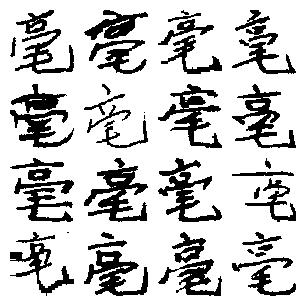 毫毫毫毫
毫毫毫毫
毫毫毫毫
毫毫毫毫